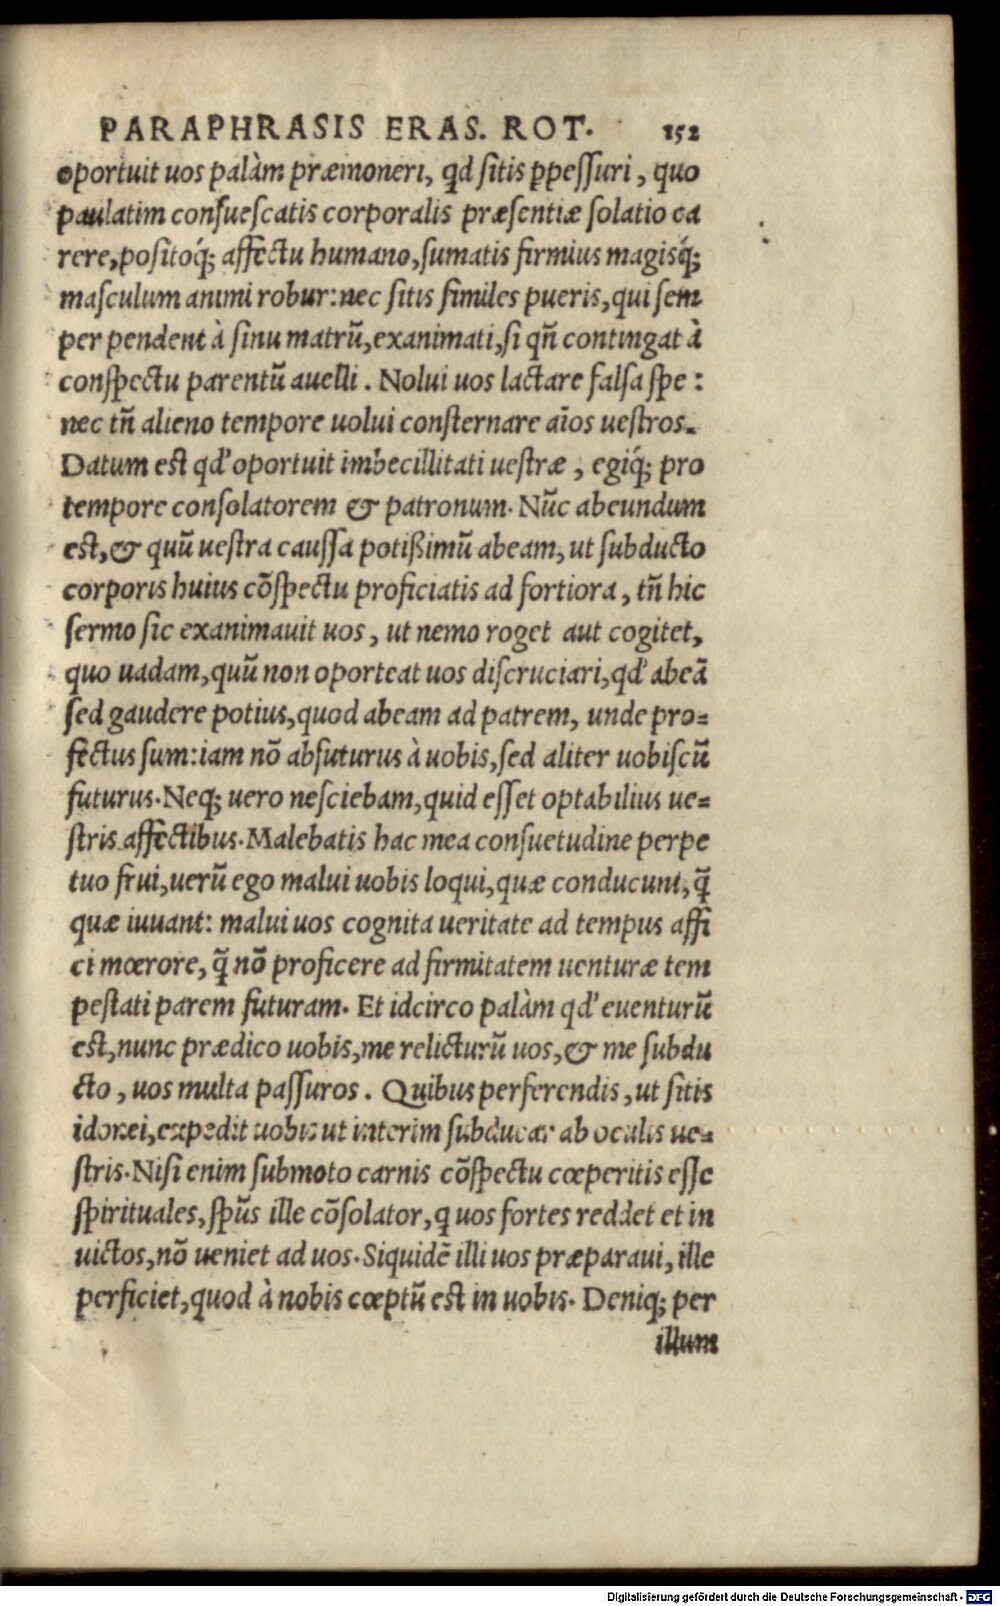 PARAPHRASIS ERAS. ROT. 152
oportuit uos palàm præmoneri, qd sitis ꝑpessuri, quo
paulatim consuescatis corporalis præsentiæ solatio ca
rere, positoq́; affectu humano, sumatis firmius magisq́;
masculum animi robur: nec sitis similes pueris, qui sem
per pendent à sinu matrũ, exanimati, si qñ contingat à
conspectu parentũ auelli. Nolui uos lactare falsa spe:
nec tñ alieno tempore uolui consternare aĩos uestros.
Datum est qd' oportuit imbecillitati uestræ, egiq́; pro
tempore consolatorem & patronum. Nũc abeundum
est, & quũ uestra caussa potißimũ abeam, ut subducto
corporis huius cõspectu proficiatis ad fortiora, tñ hic
sermo sic exanimauit uos, ut nemo roget aut cogitet,
quo uadam, quũ non oporteat uos discruciari, qd' abeã
sed gaudere potius, quod abeam ad patrem, unde pro=
fectus sum: iam nõ absuturus à uobis, sed aliter uobiscũ
futurus. Neq; uero nesciebam, quid esset optabilius ue=
stris affectibus. Malebatis hac mea consuetudine perpe
tuo frui, uerũ ego malui uobis loqui, quæ conducunt, q̃
quæ iuuant: malui uos cognita ueritate ad tempus affi
ci mœrore, q̃ nõ proficere ad firmitatem uenturæ tem
pestati parem futuram. Et idcirco palàm qd' euenturũ
est, nunc prædico uobis, me relicturũ uos, & me subdu
cto, uos multa passuros. Quibus perferendis, ut sitis
idonei, expedit uobis ut interim subducar ab oculis ue=
stris. Nisi enim submoto carnis cõspectu cœperitis esse
spirituales, spũs ille cõsolator, q uos fortes reddet et in
uictos, nõ ueniet ad uos. Siquidẽ illi uos præparaui, ille
perficiet, quod à nobis cœptũ est in uobis. Deniq; per
illum
Digitalisierung gefördert durch die Deutsche Forschungsgemeinschaft - DFG